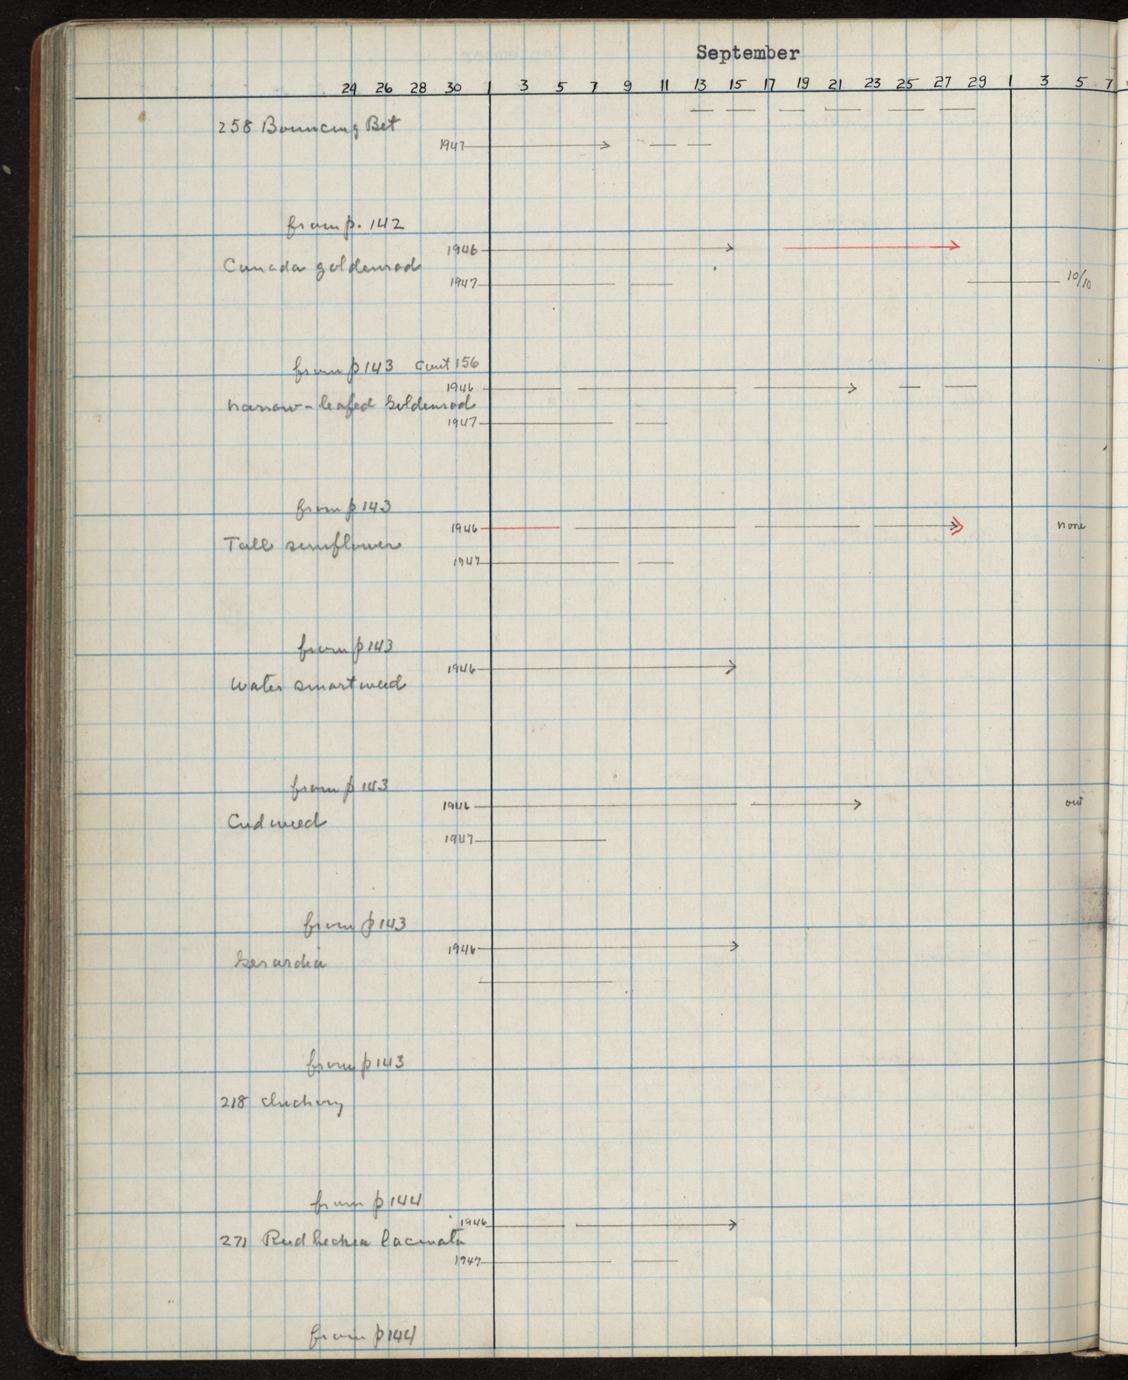 September
24 26 28 30 1 3 5 7 9 11 13 15 17 19 21 23 25 27 29 1 3 5 7
258 Bouncing Bet
1947
from p. 142
1946
Canada goldenrod
1947
10/10
from p 143 Cont 156
1946
narrow-leafed Goldenrod
1947
from p 143
1946
none
Tall sunflower
1947
from p 143
1946
Water smartweed
from p 143
1946
out
Cudweed
1947
from p 143
1946
Gerardia
from p 143
218 Chickory
from p 144
1946
271 Rudbeckia laciniata
1947
from p 144